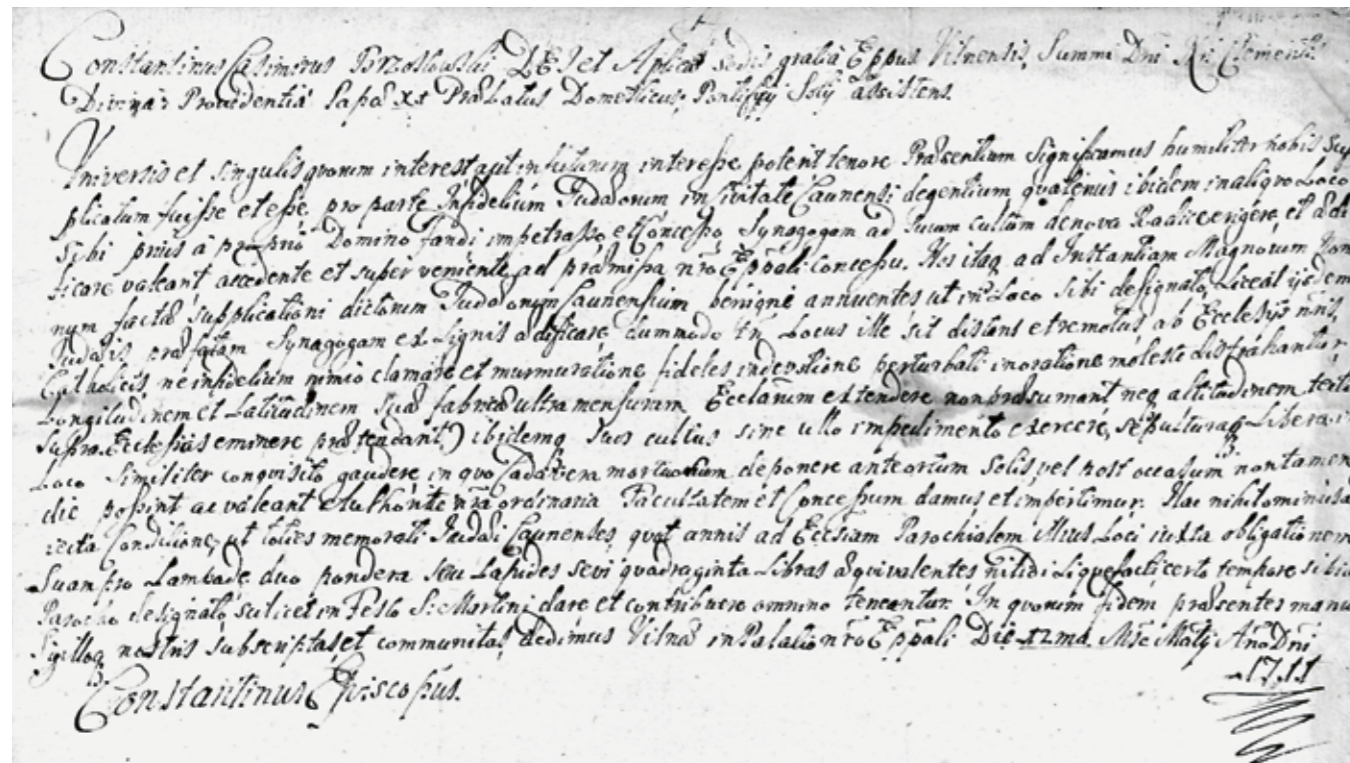 Constantinus Casimirus Brzostowski DEI et Aplicæ Sedis gratia Eppus Vilnensis, Summi Dni Xri Clementis
Divina Providentia Papæ XI Prælatus Domesticus, Pontificij Solij assistens.
Universis et singulis quorum interest aut in futurum interesse poterit tenore Præsentium significamus humiliter nobis sup
plicatum fuisse et esse, pro parte Infidelium Judæorum in Civitate Caunensi degentium, quatenus ibidem in aliquo Loco
sibi prius à proprio Domino fundi impetrasso et Concesso Synagogam ad suum cultum de nova Radice erigere et ædi
ficare valeant accedente et super veniente, ad præmissa nro Eppali Concessu. Nos itaq ad Instantiam Magnorum nom
num factæ supplicationi dictorum Judæorum Caunensium benigne annuentes ut in Loco sibi designato, Liceat ijsdem
Judæis præfatam Synagogam ex Lignis ædificare, dummodo Locus ille sit distans et remotus ab Ecclesijs nris
Catholicis ne infidelium nimio clamore et murmuratione fideles in devotione perturbati in oratione moleste distrahantur
Longitudinem et Latitudinem suæ fabricæ ultra mensuram Ecclarum extendere non præsumant neq altitudinem tecti
supra Ecclesias eminere prætendant) ibidemq suos cultus sine ullo impedimento exercere, sepulturaq Libera i
Loco similiter conquisito gaudere, in quo Cadavera mortuorum deponere ante ortum Solis, vel post occasum non tamen
die possint ac valeant Authoritate nra ordinaria Facultatem et Concessum damus et impertimur. Hac nihilominus
recta Conditione, ut toties memorati Judæi Caunenses quot annis ad Eccsiam Parochialem illius Loci iuxta obligationem
suam pro Lampade, duo pondera seu Lapides sevi quadraginta Libras æquivalentes nitidi Liquefacti certo tempore sibi
Parocho designato scilicet in Festo S: Martini dare et contribuere omnino teneantur. In quorum fidem præsentes manu
Sigilloq nostris subscriptas et communitas dedimus Vilnæ in Palatio nro Eppali Die 12ma Mse Maij Ano Dni
1711
Constantinus Episcopus.